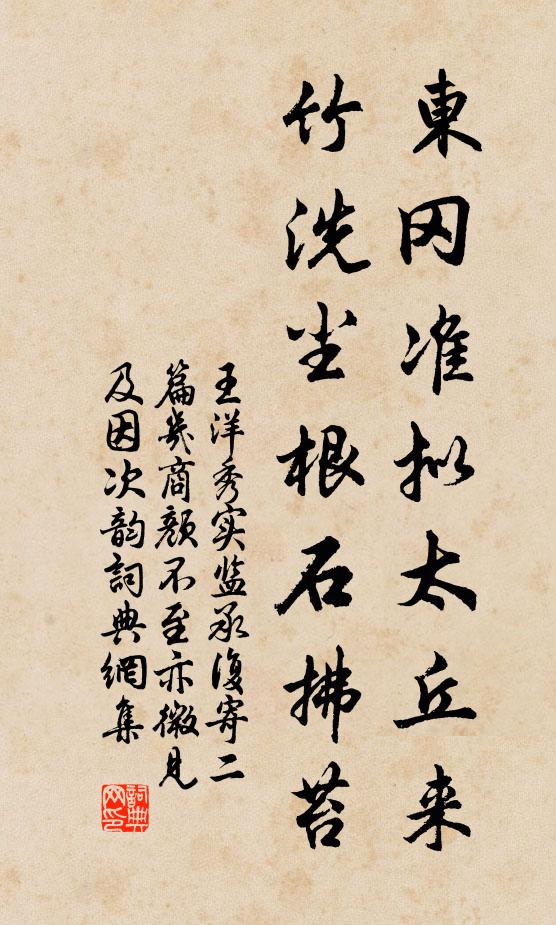 東冈准拟太丘来
竹洗尘根石拂苔
王洋秀实监丞復寄二
篇戋商颜不至亦微见
及因次韵詞典網集
詞典网印